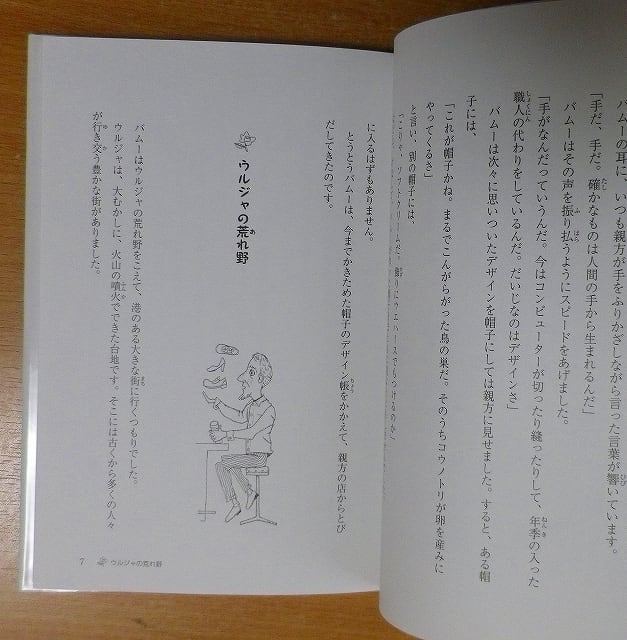 バムーの耳に、いつも親方が手をふりかざしながら言った言葉が響いています。
「手だ、手だ。確かなものは人間の手から生まれるんだ」
バムーはその声を振り払うようにスピードをあげました。
「手がなんだっていうんだ。今はコンピューターが切ったり縫ったりして、年季の入った
職人の代わりをしているんだ。だいじなのはデザインさ」
バムーは次々に思いついたデザインを帽子にしては親方に見せました。すると、ある帽
子には、
「これが帽子かね。まるでこんがらがった鳥の巣だ。そのうちコウノトリが卵を産みに
やってくるさ」
と言い、別の帽子には、
「こりゃ、ソフトクリームだ。飾りにウエハースでもつけるのか」
に入るはずもありません。
とうとうバムーは、今までかきためた帽子のデザイン帳をかかえて、親方の店からとび
だしてきたのです。
ウルジャの荒れ野
バムーはウルジャの荒れ野をこえて、港のある大きな街に行くつもりでした。
ウルジャは、大むかしに、火山の噴火でできた台地です。そこには古くから多くの人々
が行き交う豊かな街がありました。
7 ウルジャの荒れ野